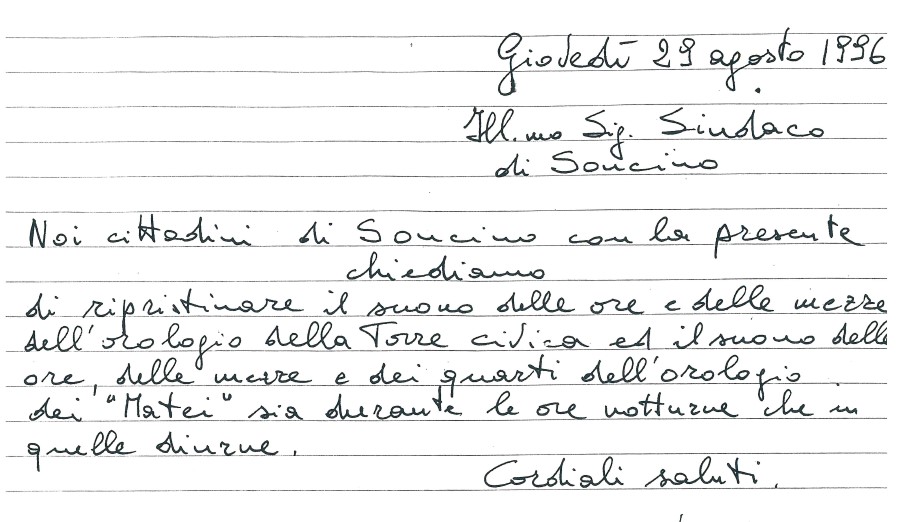 Giovedì 29 agosto 1996
Ill.mo Sig. Sindaco
di Soncino
Noi cittadini di Soncino con la presente
chiediamo
di ripristinare il suono delle ore e delle mezze
dell'orologio della Torre civica ed il suono delle
ore, delle mezze e dei quarti dell'orologio
dei "Matei" sia durante le ore notturne che in
quelle diurne.
Cordiali saluti.